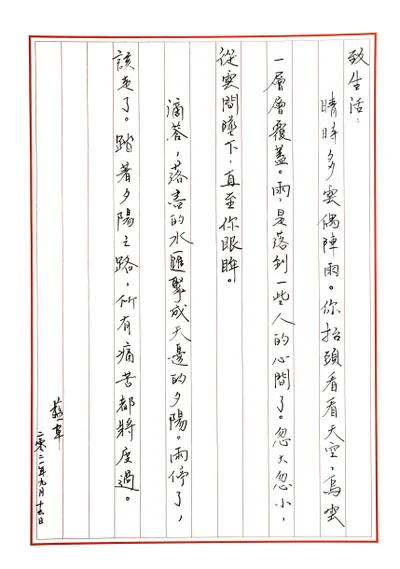 致生活：
晴時多雲偶陣雨。你抬頭看看天空，烏雲
一層層覆蓋。雨，是落到一些人的心間了。忽大忽小，
從雲間墜下，直至你眼眸。
滴答，落的水匯聚成天邊的夕陽。雨停了，
該走了。踏著夕陽之路，所有痛苦都將度過。
二零二一年九月十六日